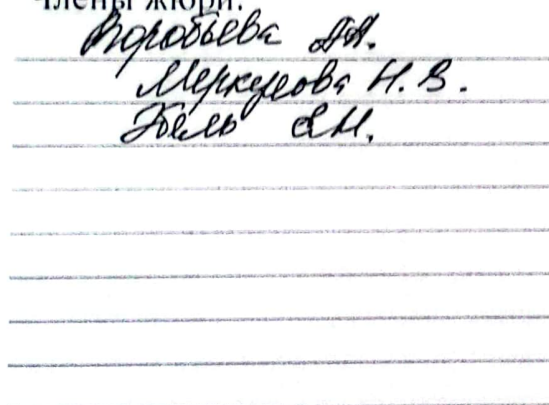 члены жюри:
Воробьева А.А.
Меркулова Н.В.
Бель Е.Н.